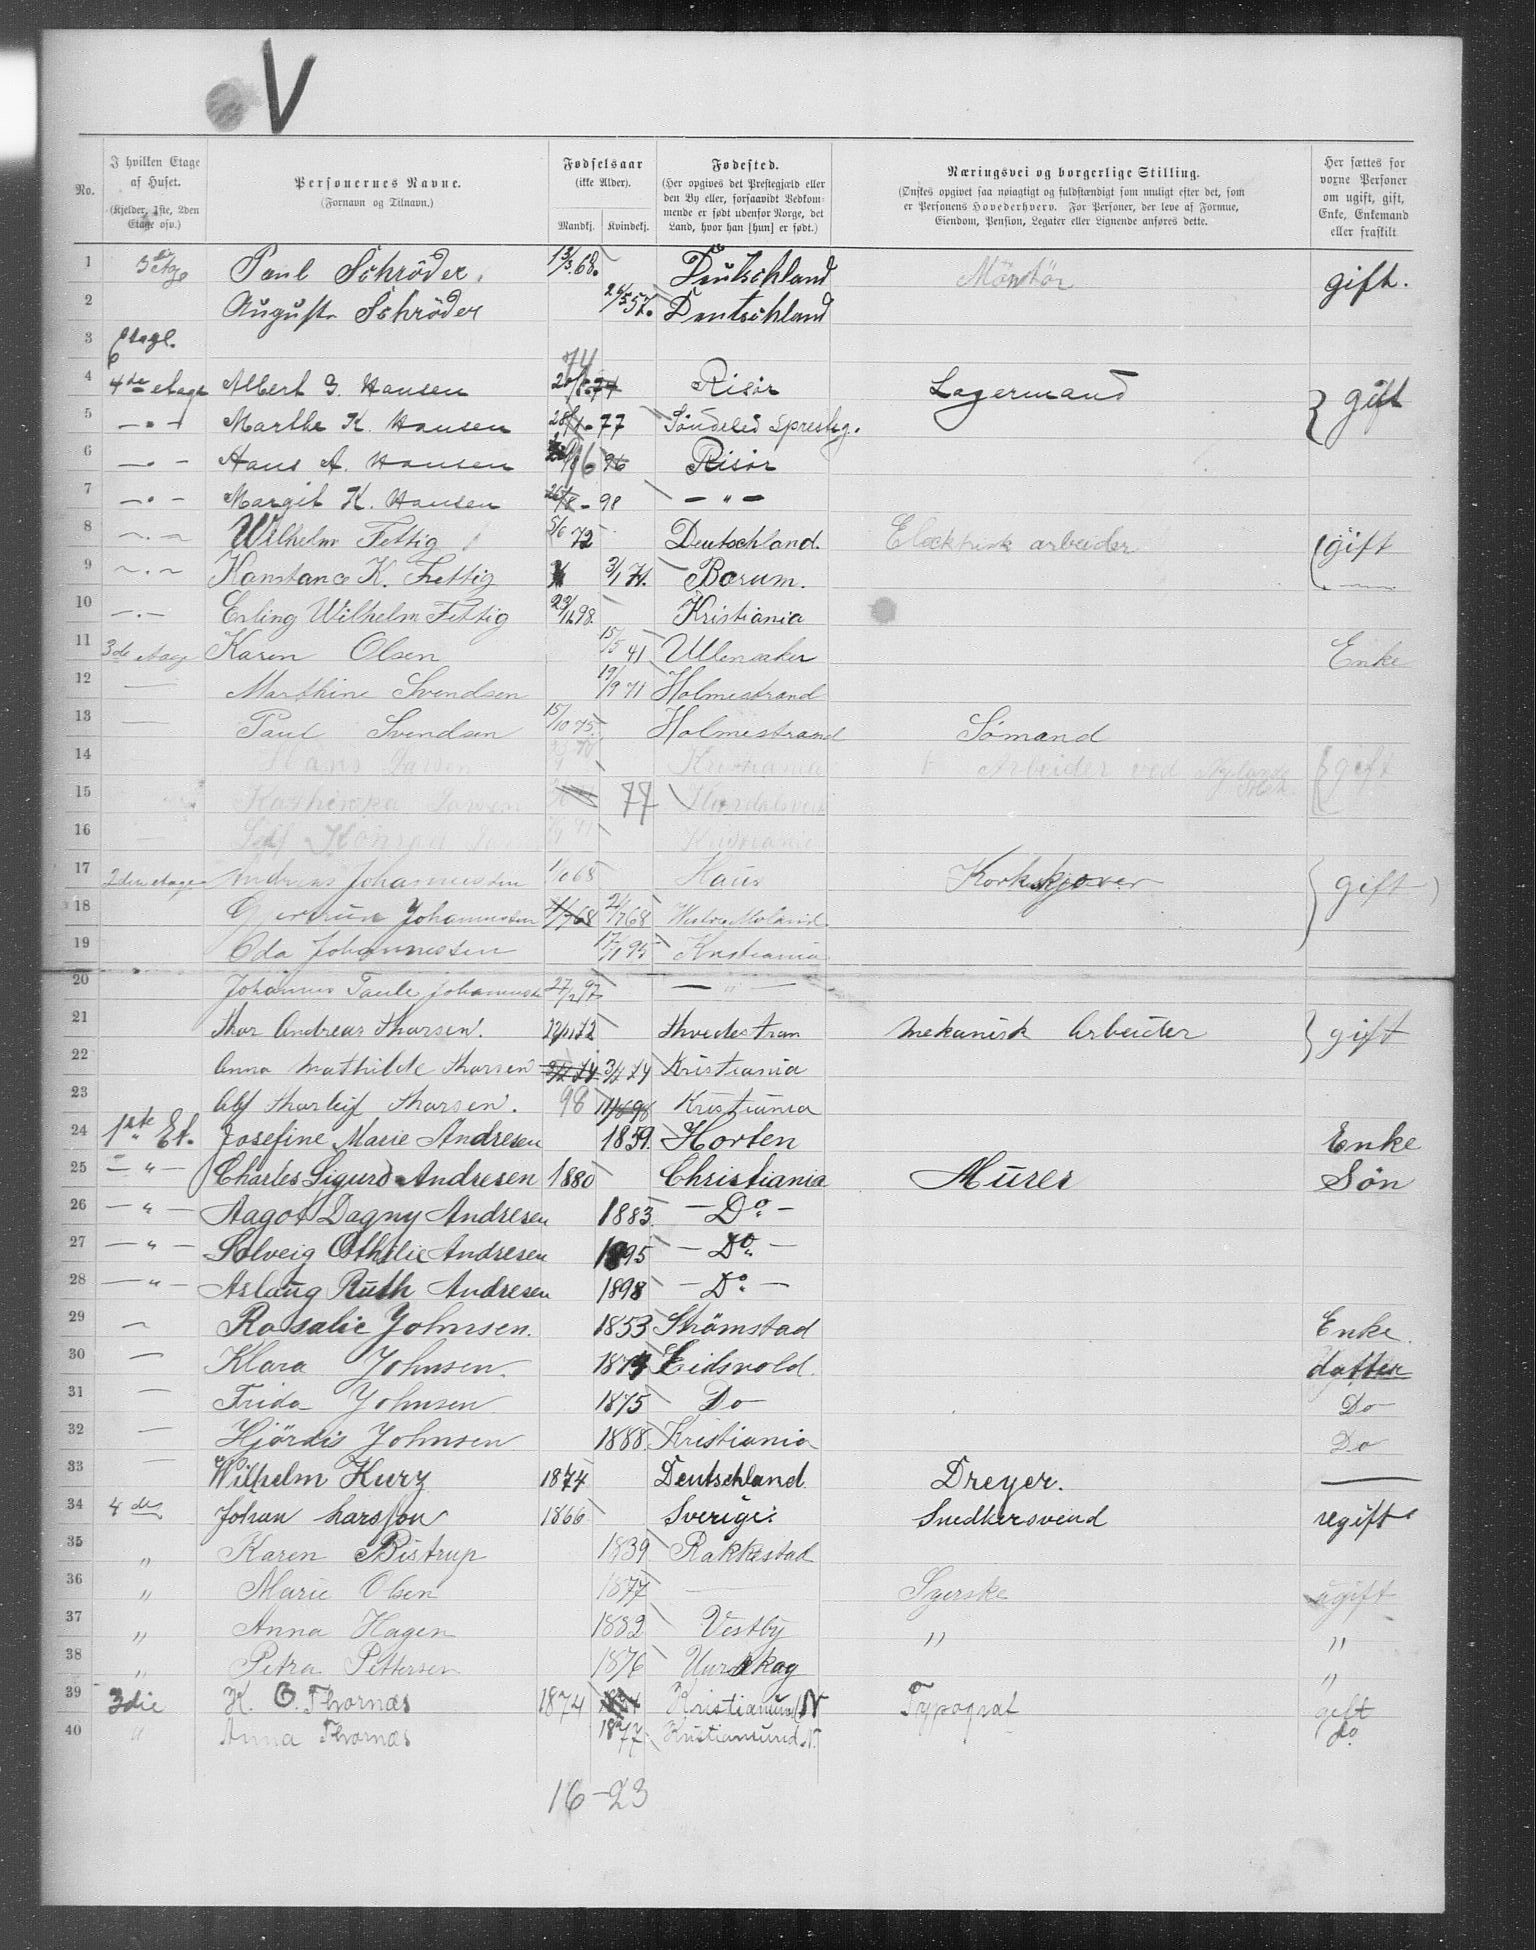 V
No.
I hvilken Etage af Huset. (Kjelder, 1ste, 2den Etage osv.)
Personernes Navne. (Fornavn og Tilnavn.)
Fødselsaar (ikke Alder). Mandkj. Kvindekj.
Fødested. (Her opgives det Prestegjæld eller den By eller, forsaavidt Vedkommende er født udenfor Norge, det Land, hvor han [hun] er født.)
Næringsvei og borgerlige Stilling. (Ønskes opgivet saa nøiagtigt og fuldstændigt som muligt efter det, som er Personens Hovederhverv. For Personer, der leve af Formue, Eiendom, Pension, Legater eller Lignende anføres dette.)
Her sættes for voxne Personer om ugift, gift, Enke, Enkemand eller fraskilt
1 Paul Schröder. 13/3 68. Deutschland Montör gift.
2 Augusta Schröder 57. Deutschland
3
4 4de etage Albert G. Hansen 74 Risör Lagermand gift
5 — " — Marthe K. Hansen 77 Søndeled
6 — " — Hans A. Hansen 96 Risör
7 — " — Margit K. Hansen 98 — " —
8 — " — Wilhelm Fettig 5/6 72 Deutschland. Elecktrisk arbeider gift
9 — " — Konstance K. Fettig 3/1 74. Bærum.
10 — " — Erling Wilhelm Fettig 98. Kristiania
11 3de etage Karen Olsen 15/5 41 Ullensaker Enke
12 — Marthine Svendsen 19/9 71 Holmestrand
13 — Paul Svendsen 15/10 75 Holmestrand Sømand
14 Hans Larsen Kristiania Arbeider ved gift
15 Larsen 77
16 Kristiania
17 2den etage Andreas Johannessen 68 Haus Korkskjærer gift
18 Johannessen 21/7 68
19 Oda Johannessen 95 Kristiania
20 Johannes 27/2 97 — " —
21 Thor Andreas Thorsen. 22/11 72 mekanisk Arbeider gift
22 Anna Mathilde Thorsen 74 Kristiania
23 Alf Thorleif Thorsen. 98 Kristiania
24 1ste Et. Josefine Marie Andresen 1859. Horten Enke
25 — " — Charles Sigurd Andresen 1880 Christiania Murer Søn
26 — " — Aagot Dagny Andresen 1883. — Do. —
27 — " — Solveig Othilie Andresen 1895 — Do. —
28 — " — Aslaug Ruth Andresen 1898 — Do. —
29 — Rosalie Johnsen. 1853 Strömstad Enke.
30 — Klara Johnsen. Eidsvold. datter
31 — Frida Johnsen 1875 Do — Do —
32 — Hjördis Johnsen 1888. Kristiania Do
33 — Wilhelm Kurz 1874 Deutschland Dreyer. —
34 4de Johan Larsson 1866 Sverige. Snedkersvend ugift
35 " Karen Bistrup 1839 Rakkestad
36 " Marie Olsen 1877 — Syerske ugift
37 " Anna Hagen 1882 Vestby " "
38 " Petra Pettersen 1876 Uurskog "
39 3die K. O. Thornæs 1874 Kristiansund N Typograf gift
40 " Anna Thornæs 1877 Kristiansund N. do
16 - 23